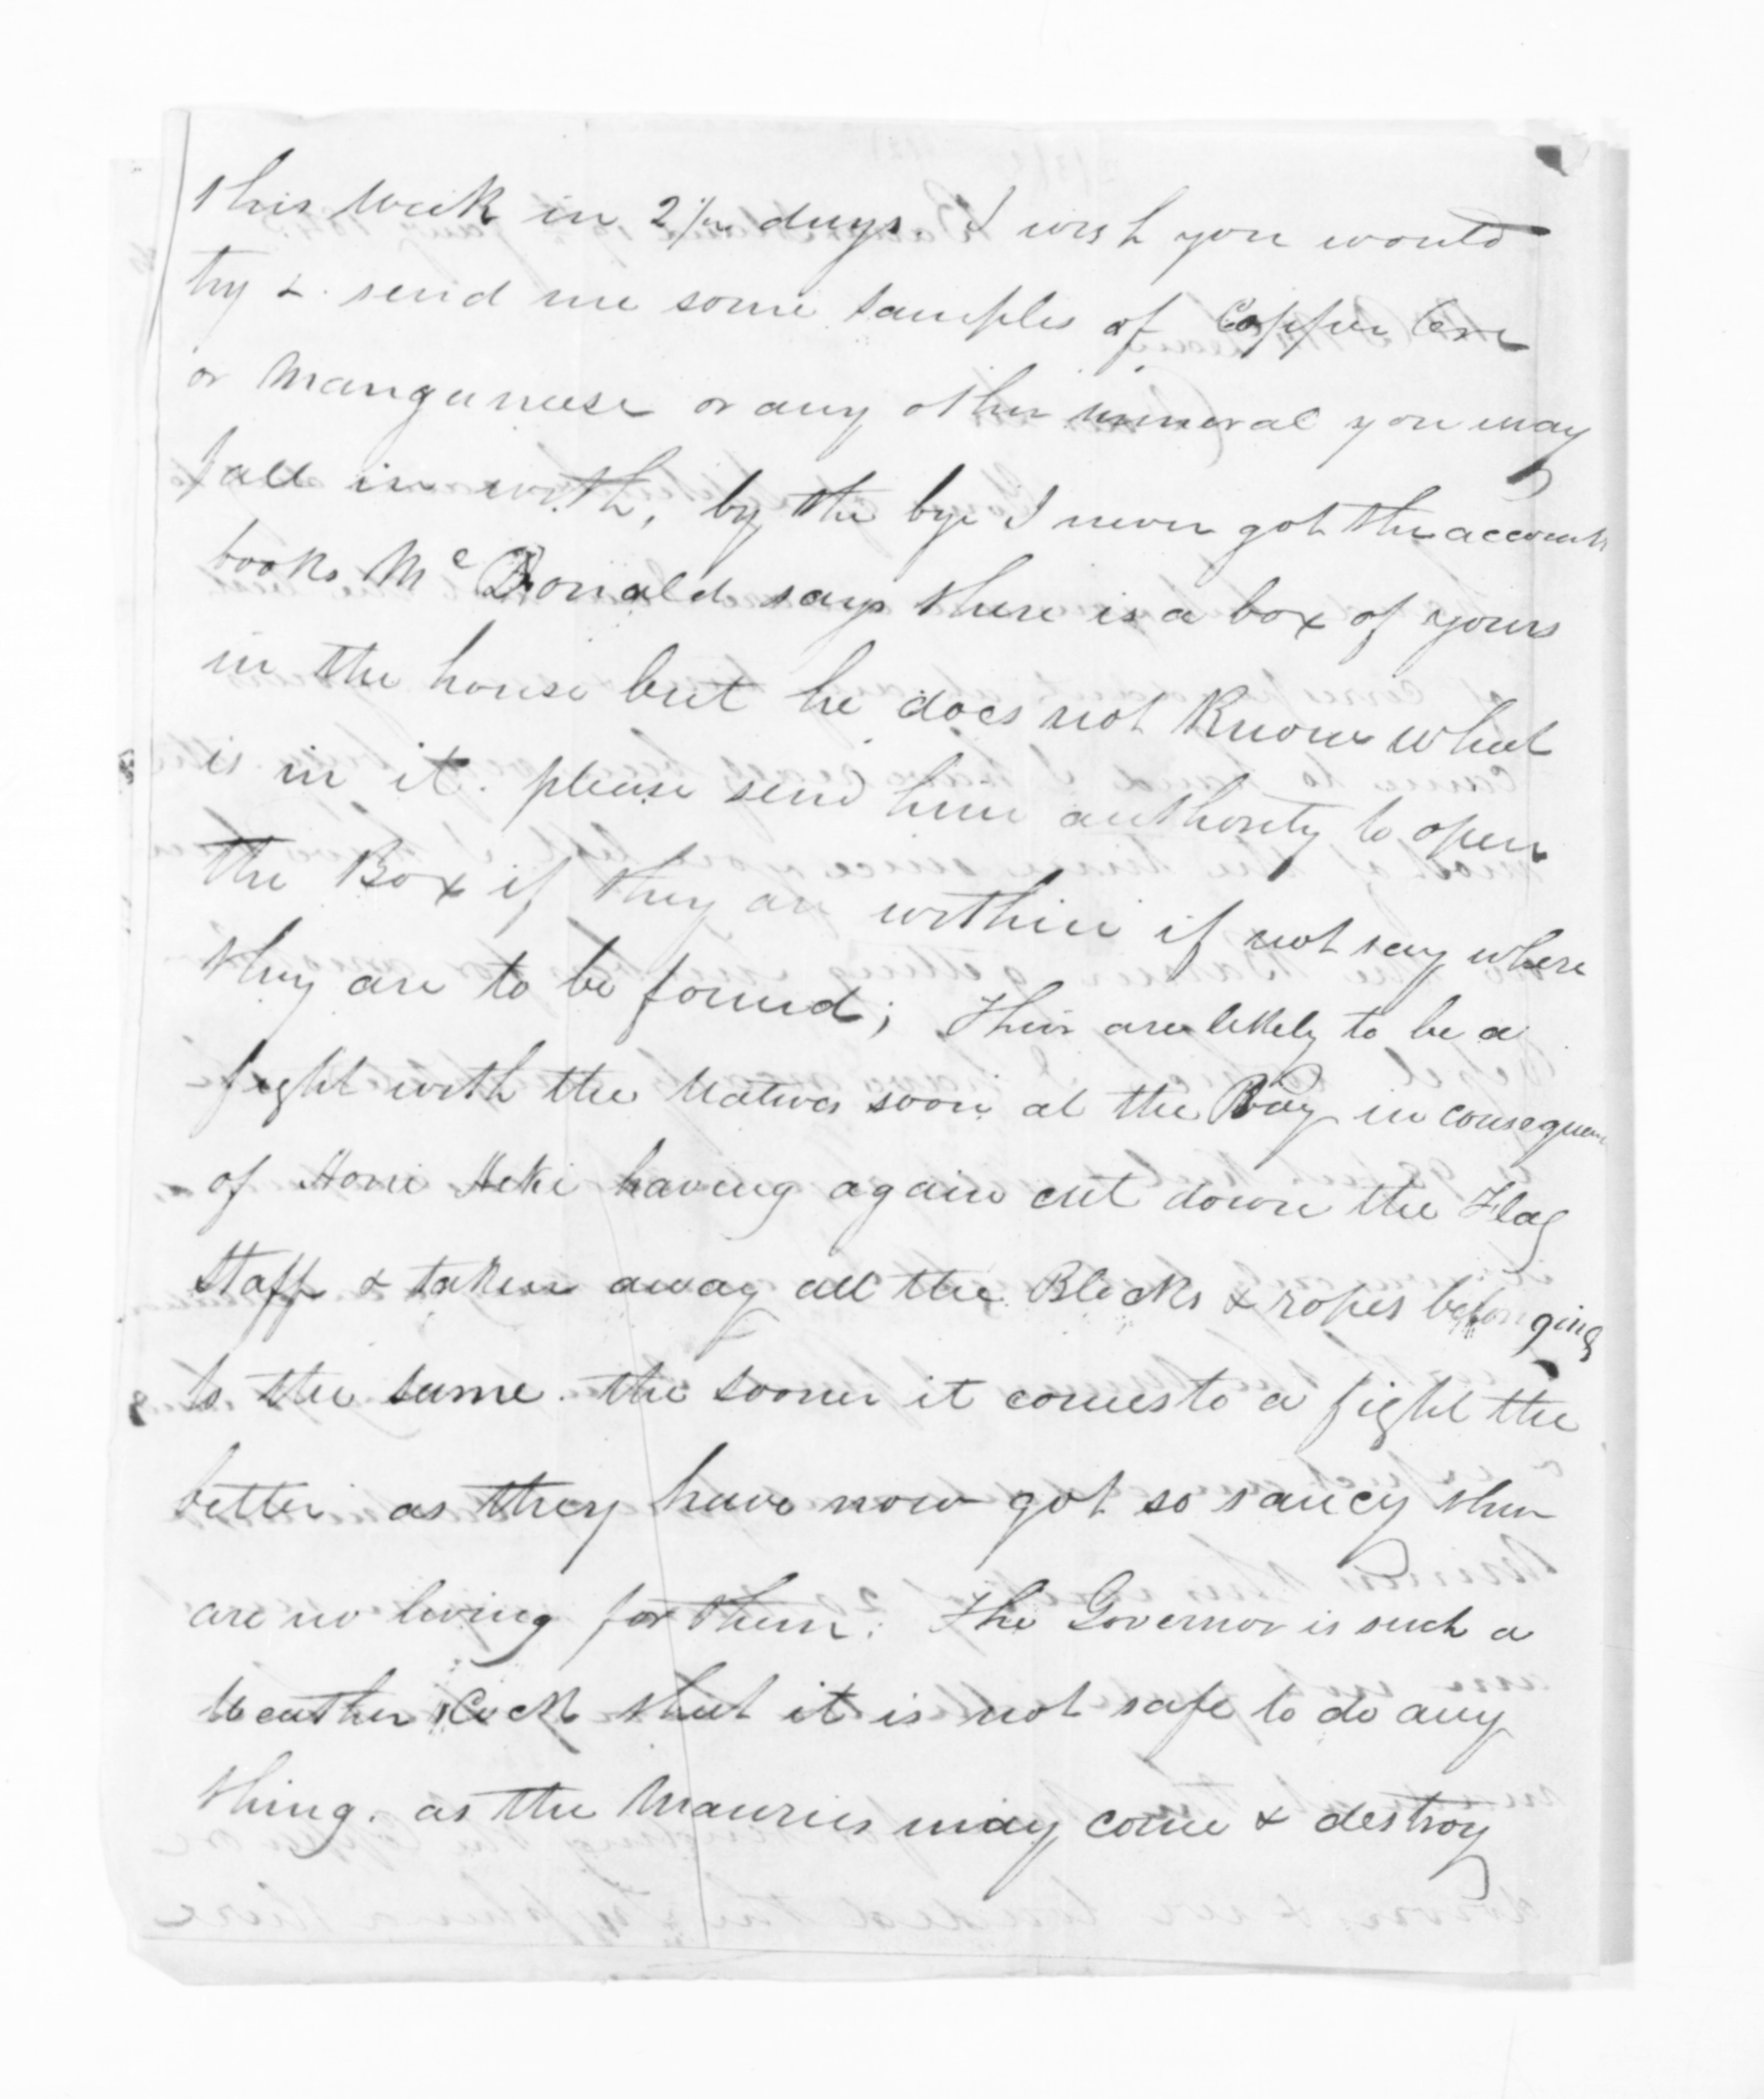 this week in 2½ days. I wish you would
try & send me some samples of Copper Ore
or Manganeese or any other mineral you may
fall in with, by the bye I never got the account
books McDonald says there is a box of yours
in the house but he does not know what
is in it. please send him authority to open
the Box if they are within if not say where
they are to be found; Their are likely to be a
fight with the Natives soon at the Bay in consequence
of Honi Heki having again cut down the Flag
Staff & taken away all the Blocks & ropes belonging
to the same. the sooner it comes to a fight the
better as they have now got so saucy their
are no living for them. The Governor is such a
Weather Cock that it is not safe to do any
thing. as the Mauries may come & destroy